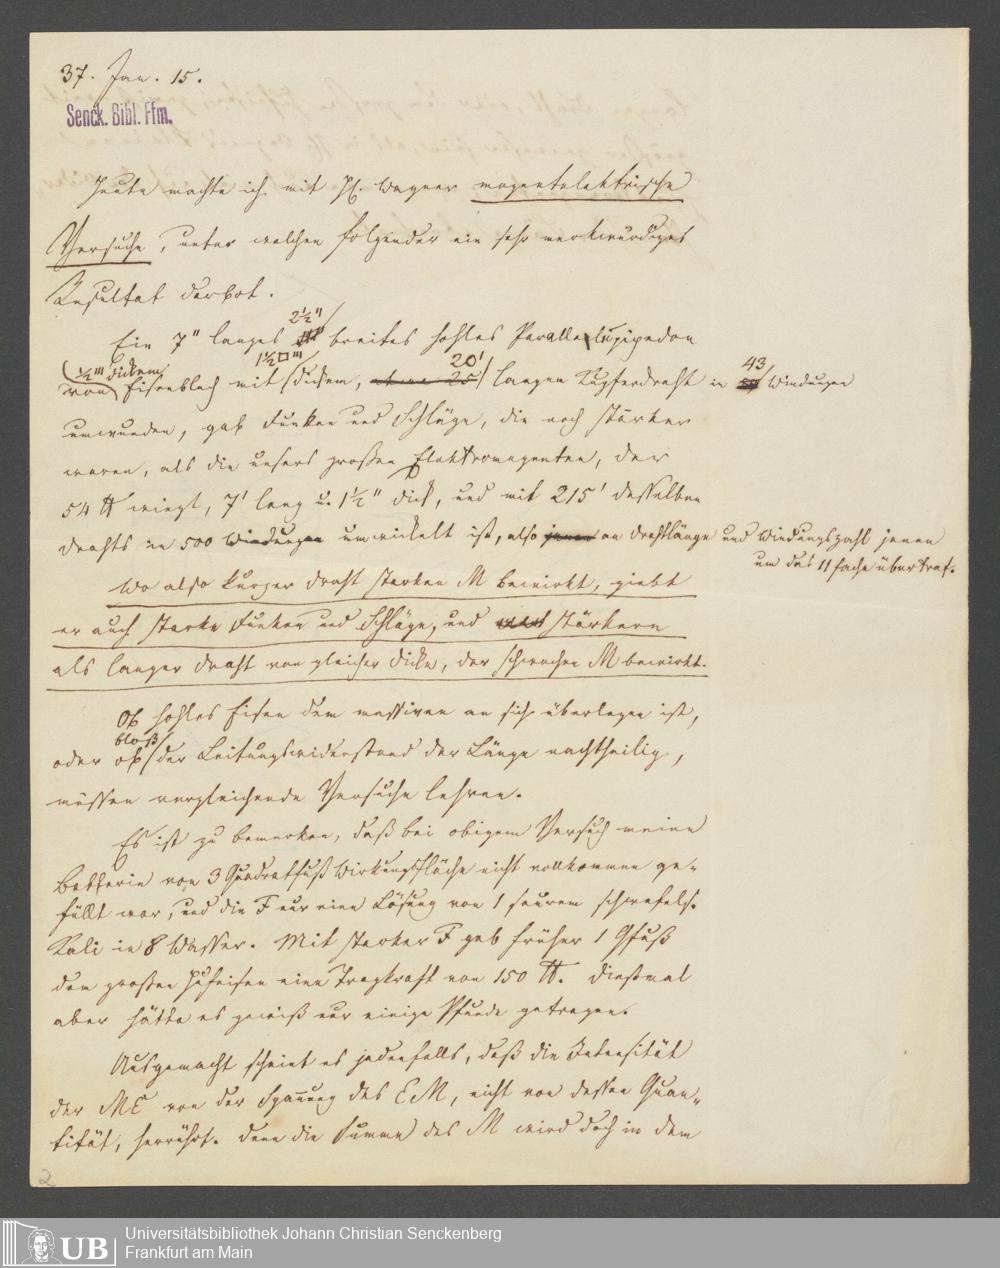 37. Jan. 15.
Senck. Bibl. Ffm.
Heute machte ich mit H. Wagner magentelektrische
Versuche, unter welchen folgender ein sehr merkwürdiges
Resultat darbot.
2½"
Ein 7" langes breites hohles Parallelepipedon
½''' dickem 1½□''' 20' 43
von Eisenblech mit dickem, etwa 25 langen Kupferdraht in Windungen
umwunden, gab Funken und Schläge, die noch stärker
waren, als die unsers großen Elektromagenten, der
54 ℔ wiegt, 7' lang u. 1½" dick, und mit 215' desselben
Drahts in 500 Windungen umwickelt ist, also jenen an Drahtlänge und Windungszahl jenen
um das 11fache übertraf.
Wo also kurzer Draht starken M bewirkt, giebt
er auch starke Funken und Schläge, und stärkern
als langer Draht von gleicher Dicke, der schwachen M bewirkt.
Ob hohles Eisen dem massiven an sich überlegen ist,
bloß
oder ob der Leitungswiderstand der Länge nachtheilig,
müssen vergleichende Versuche lehren.
Es ist zu bemerken, daß bei obigem Versuch meine
Batterie von 3 Quadratfuß Wirkungsfläche nicht vollkommen ge-
füllt war, und die F nur eine Lösung von 1 saurem schwefels.
Kali in 8 Wasser. Mit starker F gab früher 1 Qfuß
dem großen Hufeisen eine Tragkraft von 150 ℔. Dießmal
aber hätte es gewiß nur einige Pfunde getragen.
Ausgemacht scheint es jedenfalls, daß die Intensität
der ME von der Spannung des EM, nicht von dessen Quan-
tität, herrührt. Denn die Summe des M wird doch in dem
2
UB
Universitätsbibliothek Johann Christian Senckenberg
Frankfurt am Main